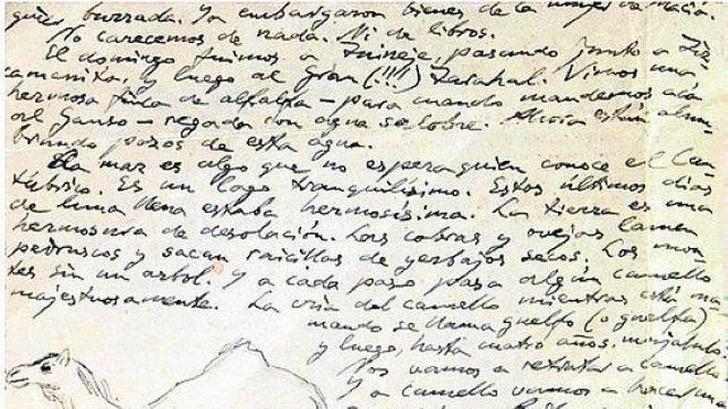 quier burrada. Ya embargaron bienes de la mujer de Maciá.
No carecemos de nada. Ni de libros.
El domingo fuimos a Tuineje, pasando junto a Tis-
camanita, y luego al Gran (!!!) Tarahal. Vimos una
hermosa finca de alfalfa – para cuando mandemos acá
al Ganso – regada con agua salobre. Ahora están alum-
brando pozos de esta agua.
La mar es algo que no espera quien conoce el Can-
tábrico. Es un lago tranquilísimo. Estos últimos días
de luna llena estaba hermosísima. La tierra es una
hermosura de desolación. Las cabras y ovejas lamen
pedruscos y sacan raicillas de yerbajos secos. Los mon-
tes sin un arbol. Y a cada paso pasa algún camello
majestuosamente. La cría del camello mientras está ma-
mando se llama guelfo (o guelfa)
y luego, hasta cuatro años, majalulo
Nos vamos a retratar a camello
Y a camello vamos a hacer una